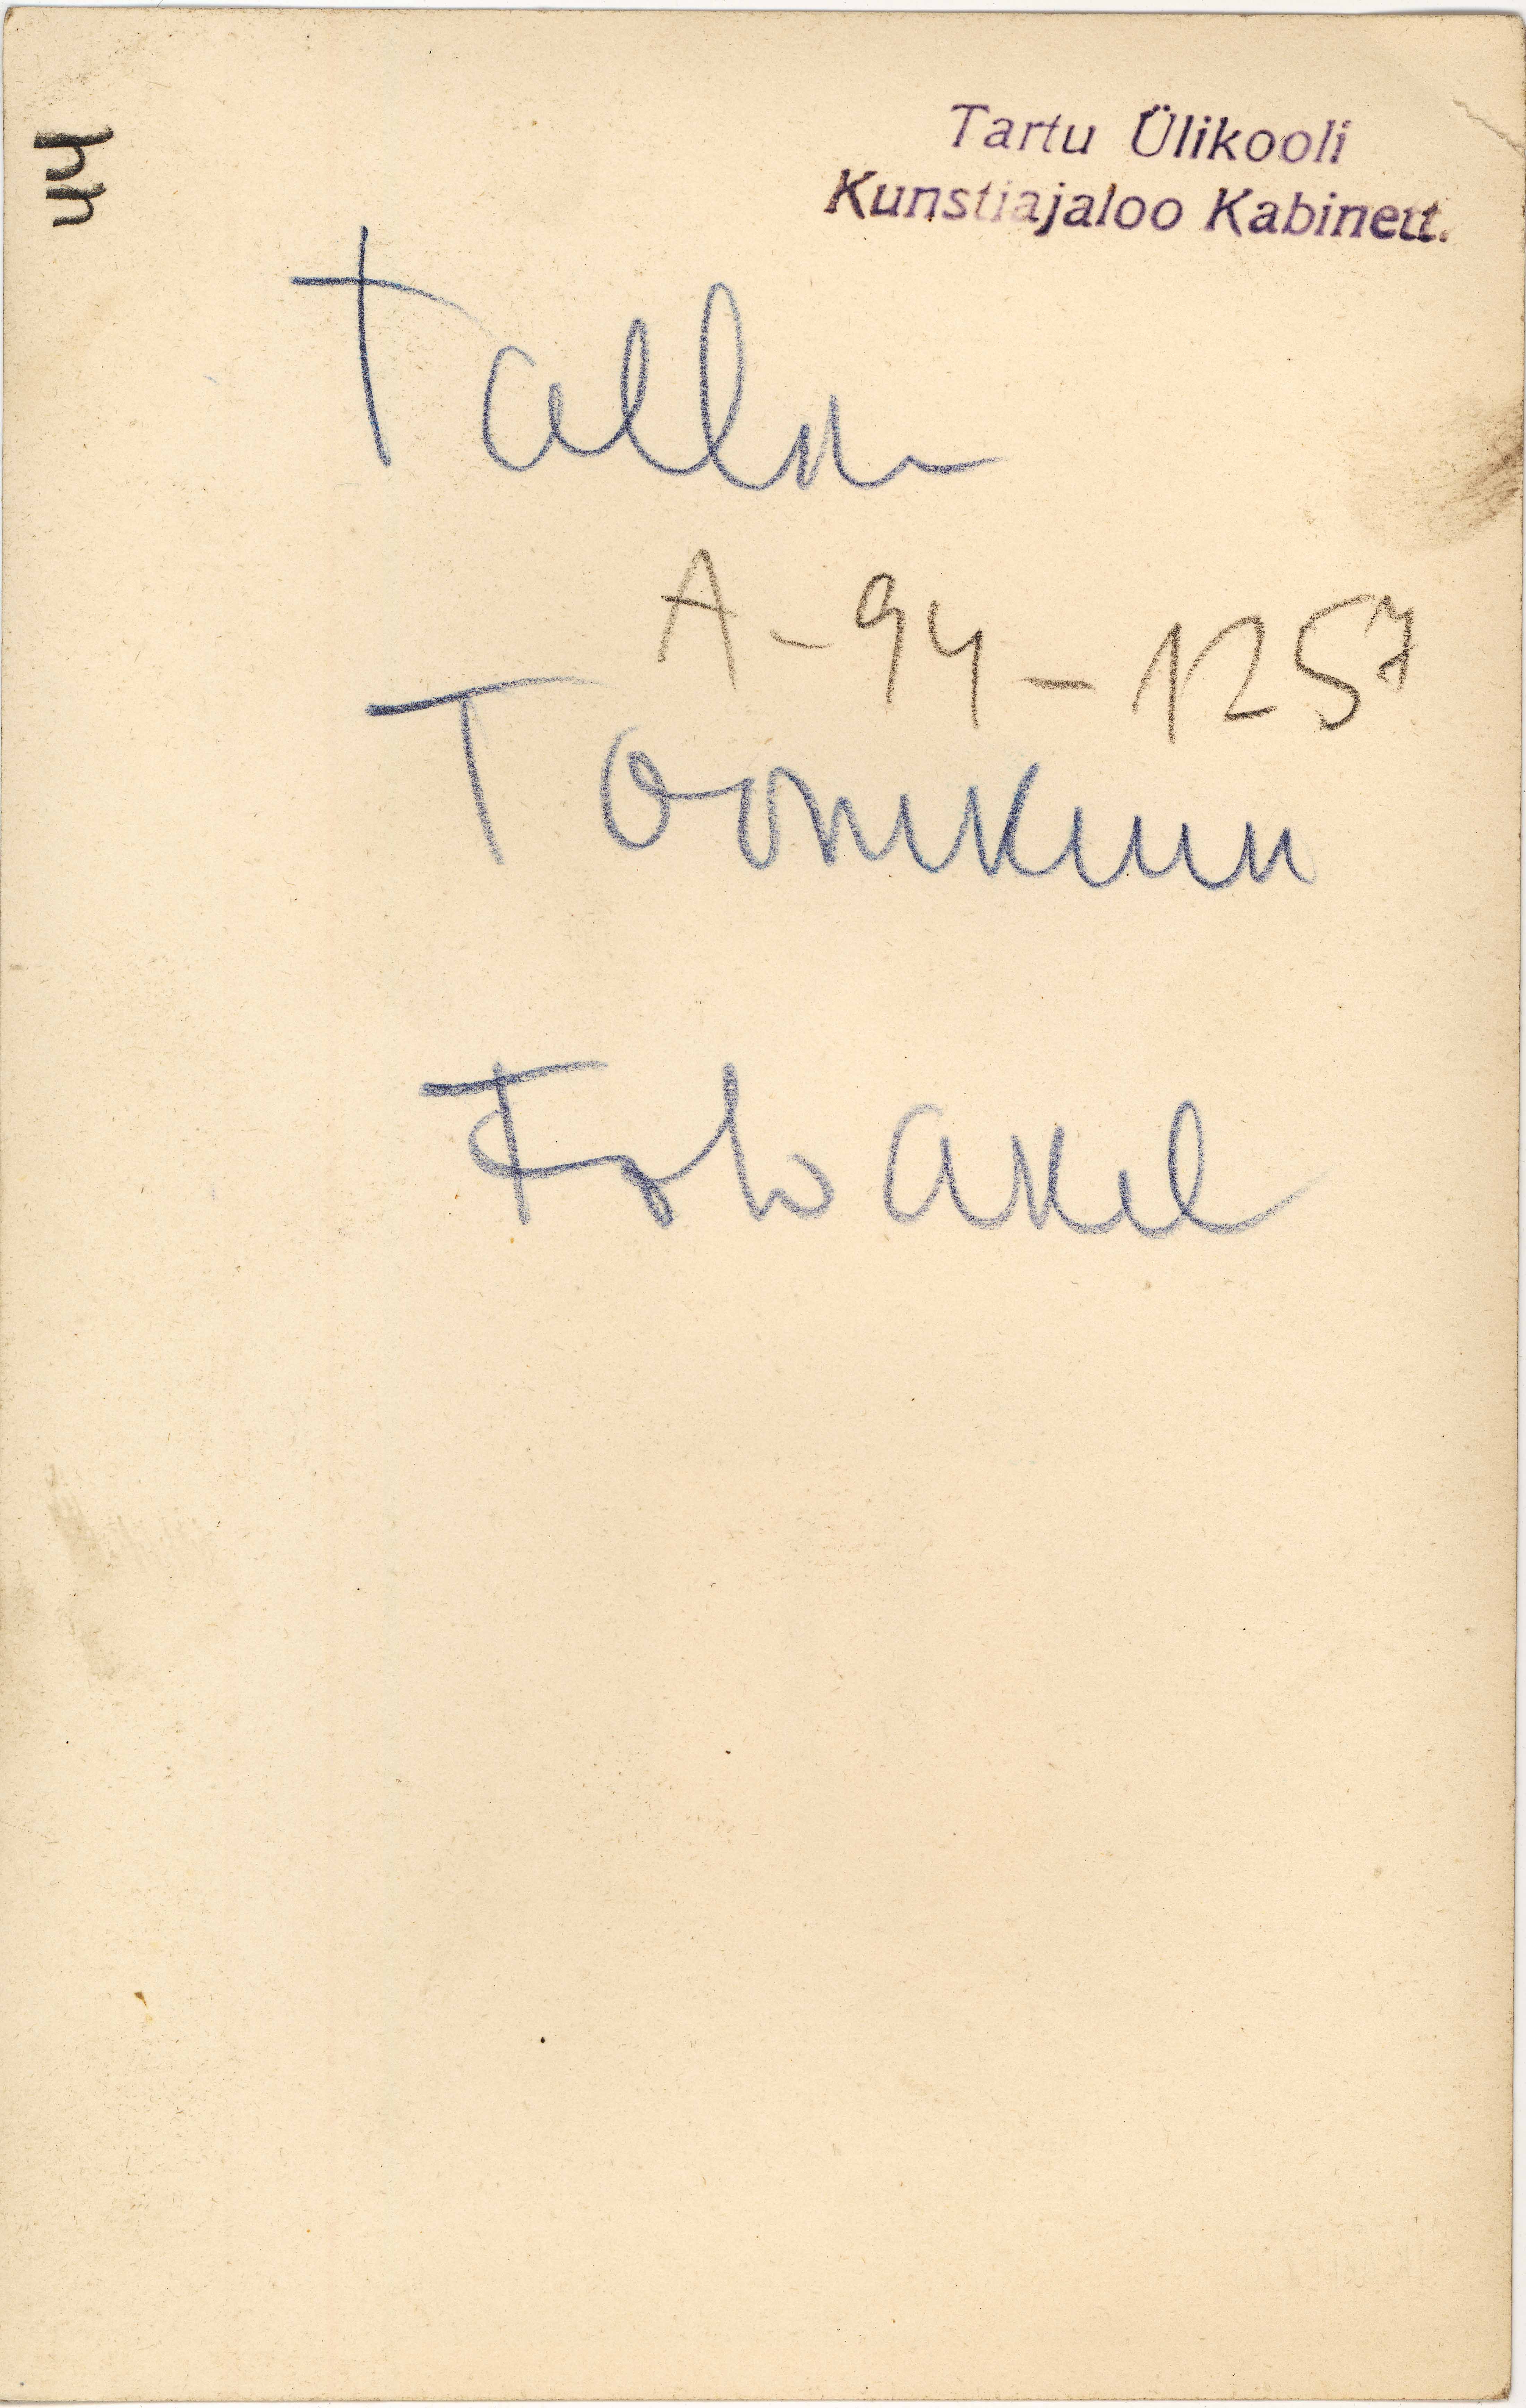 Tartu Ülikooli
Kunstiajaloo Kabinett.
Talln
A-94-1257
Toomkirik
Foto Akel